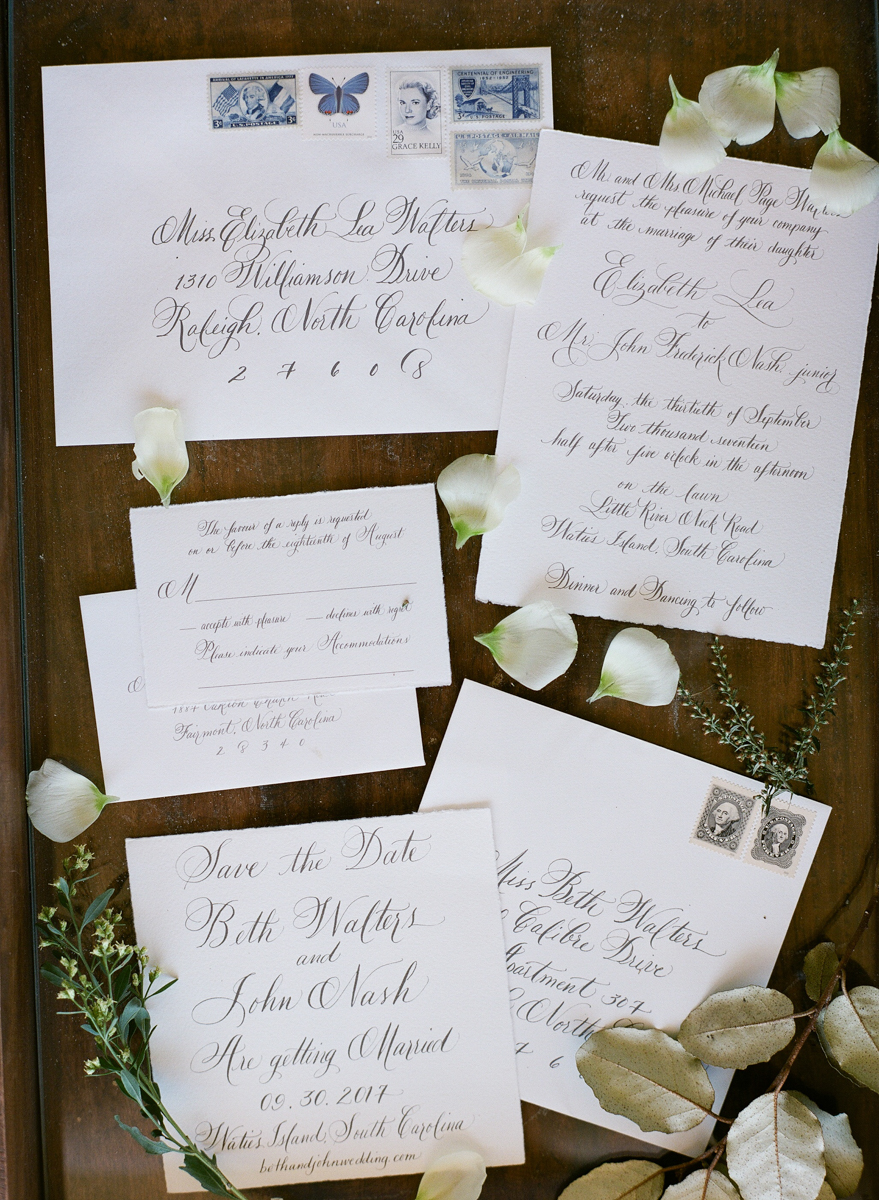 U.S. POSTAGE
3¢
USA
USA
29
GRACE KELLY
CENTENNIAL OF ENGINEERING
1852-1952
3¢
U.S. POSTAGE
U.S. POSTAGE - AIR MAIL
Miss Elizabeth Lea Walters
1310 Williamson Drive
Raleigh, North Carolina
2 7 6 0 8
Mr. and Mrs. Michael Page Walters
request the pleasure of your company
at the marriage of their daughter
Elizabeth Lea
to
Mr. John Frederick Nash, junior
Saturday, the thirtieth of September
Two thousand seventeen
half after five o'clock in the afternoon
on the lawn
Little River Neck Road
Waties Island, South Carolina
Dinner and Dancing to follow
The favour of a reply is requested
on or before the eighteenth of August
M
accepts with pleasure declines with regret
Please indicate your Accommodations
Fairmont, North Carolina
2 8 3 4 0
U.S. POSTAGE
Miss Beth Walters
Calibre Drive
Apartment 307
North
7 6
Save the Date
Beth Walters
and
John Nash
Are getting Married
09.30.2017
Waties Island, South Carolina
bethandjohnwedding.com